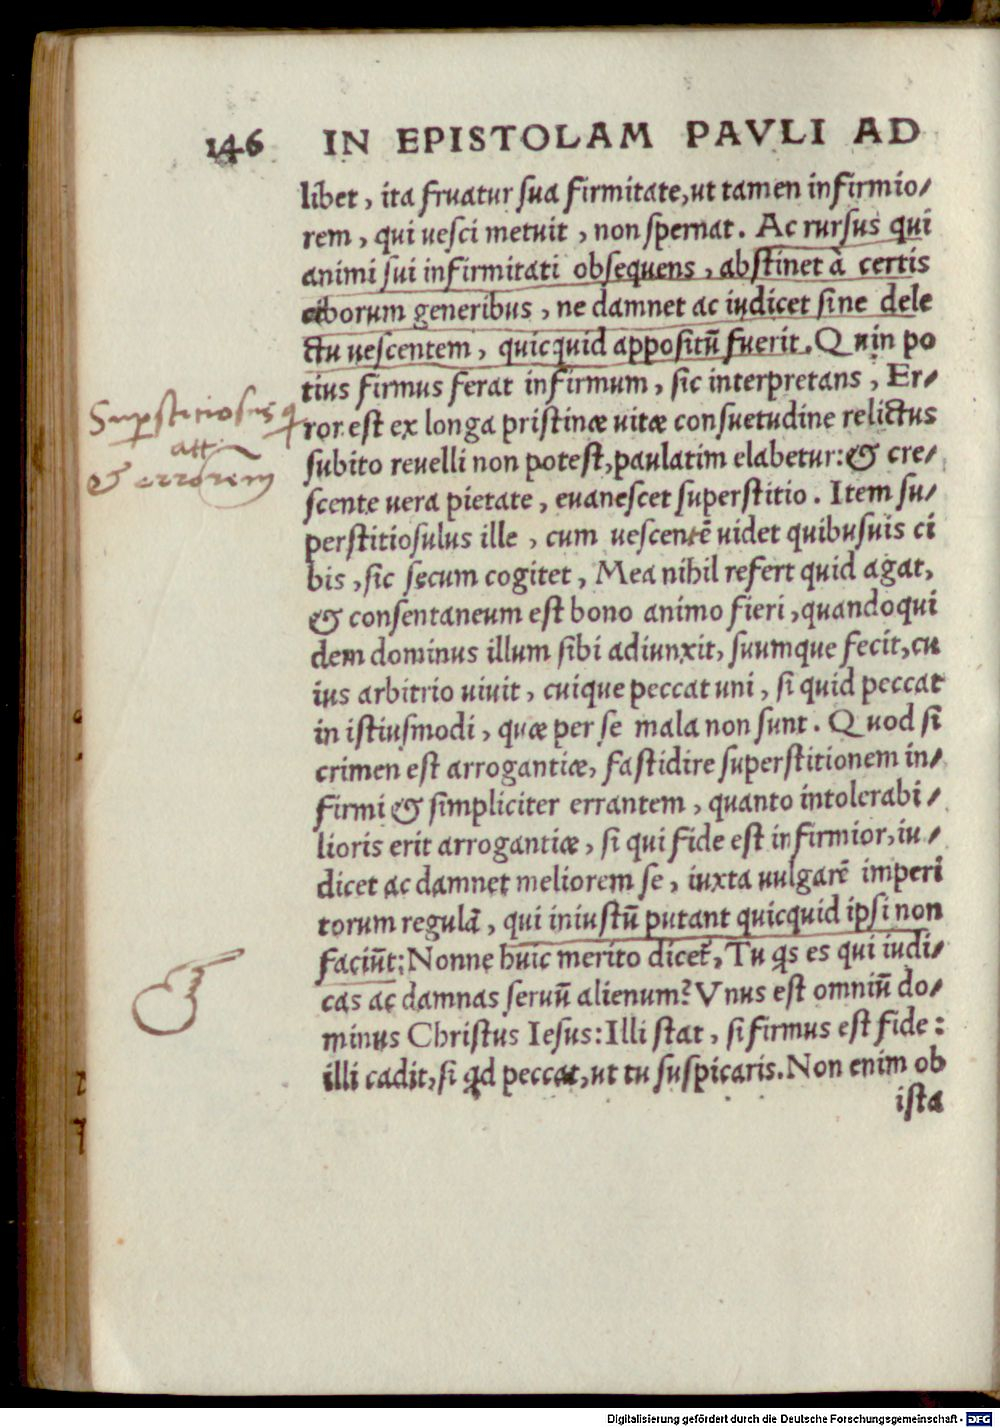 146 IN EPISTOLAM PAVLI AD
libet, ita fruatur sua firmitate, ut tamen infirmio/
rem, qui uesci metuit, non spernat. Ac rursus qui
animi sui infirmitati obsequens, abstinet à certis
ciborum generibus, ne damnet ac iudicet sine dele
ctu uescentem, quicquid appositũ fuerit. Quin po
tius firmus ferat infirmum, sic interpretans, Er/
ror est ex longa pristinæ uitæ consuetudine relictus
subito reuelli non potest, paulatim elabetur: & cre/
scente uera pietate, euanescet superstitio. Item su/
perstitiosulus ille, cum uescentẽ uidet quibusuis ci
bis, sic secum cogitet, Mea nihil refert quid agat,
& consentaneum est bono animo fieri, quandoqui
dem dominus illum sibi adiunxit, suumque fecit, cu
ius arbitrio uiuit, cuique peccat uni, si quid peccat
in istiusmodi, quæ per se mala non sunt. Quod si
crimen est arrogantiæ, fastidire superstitionem in/
firmi & simpliciter errantem, quanto intolerabi/
lioris erit arrogantiæ, si qui fide est infirmior, iu/
dicet ac damnet meliorem se, iuxta uulgarẽ imperi
torum regulã, qui iniustũ putant quicquid ipsi non
faciũt: Nonne huic merito dicet̃, Tu qs es qui iudi/
cas ac damnas seruũ alienum? Vnus est omniũ do/
minus Christus Iesus: Illi stat, si firmus est fide:
illi cadit, si qd peccat, ut tu suspicaris. Non enim ob
ista
Supstitiosus q
att
& errorem
Digitalisierung gefördert durch die Deutsche Forschungsgemeinschaft - DFG